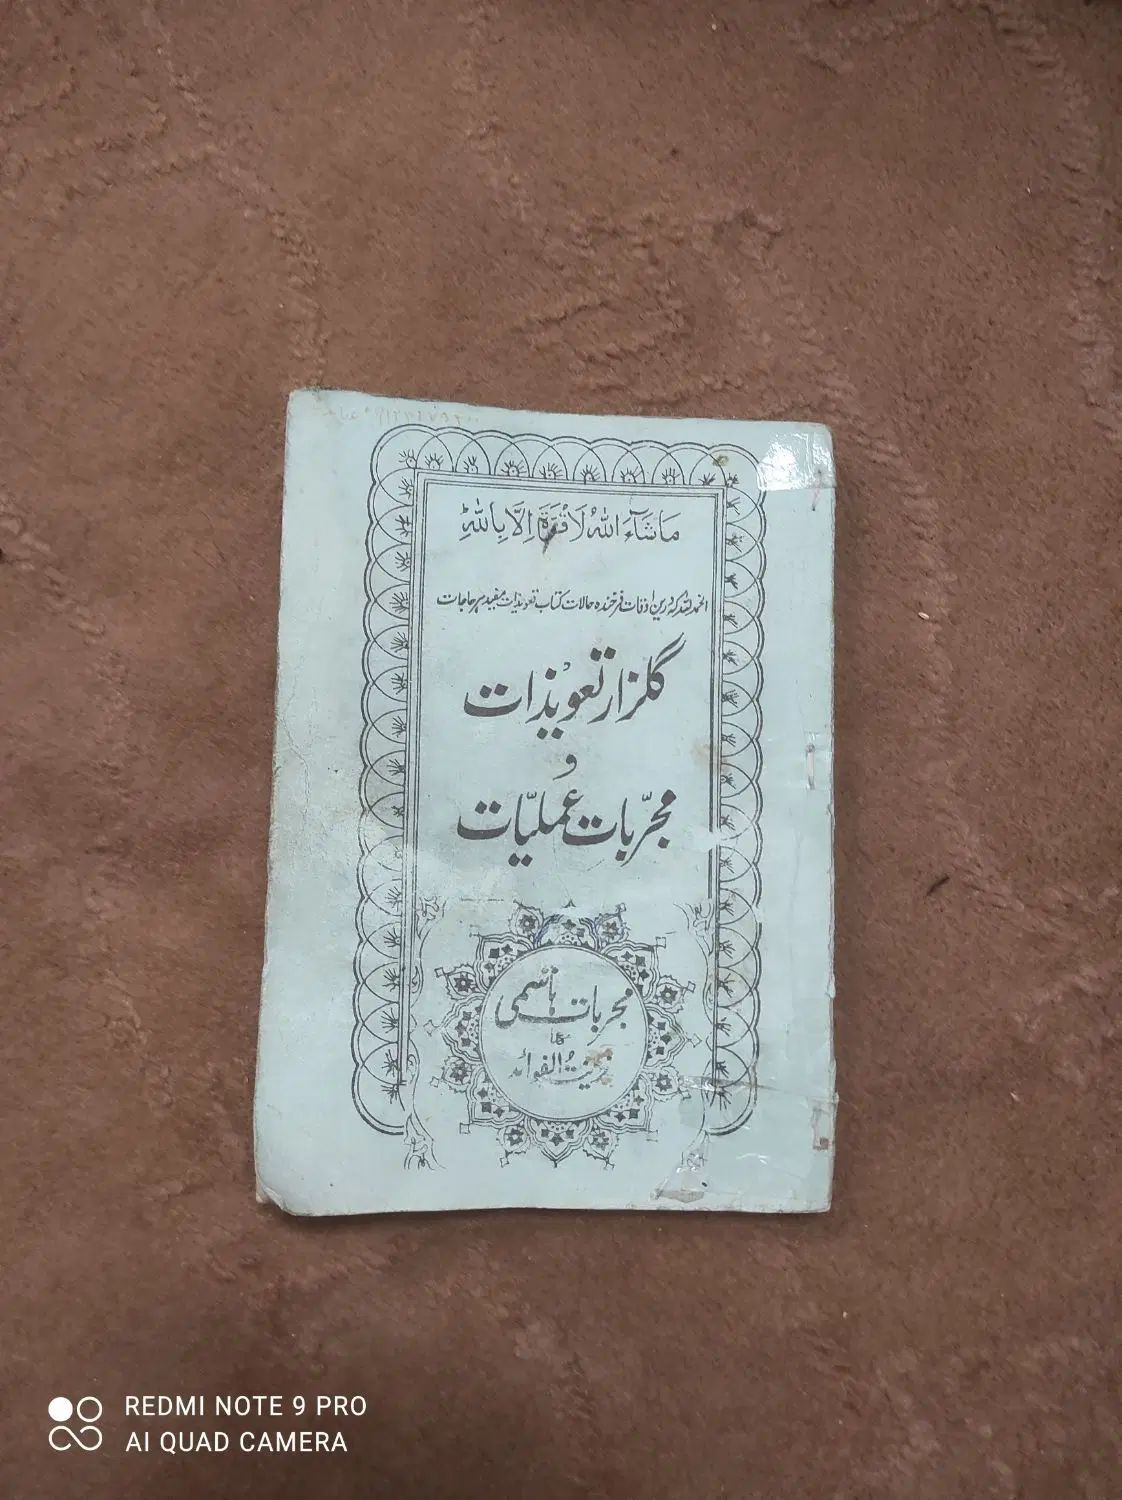 مَاشَآءَ اللهُ لَاقُوَّةَ اِلَّا بِاللهِ
الحمد للہ کہ درین اوقات فرخندہ حالات کتاب تعویذات مفید ہر حاجات
گلزار تعویذات
و
مجرّبات عملیّات
مجربات ہاشمی
زینتُ الفوائد
REDMI NOTE 9 PRO
AI QUAD CAMERA